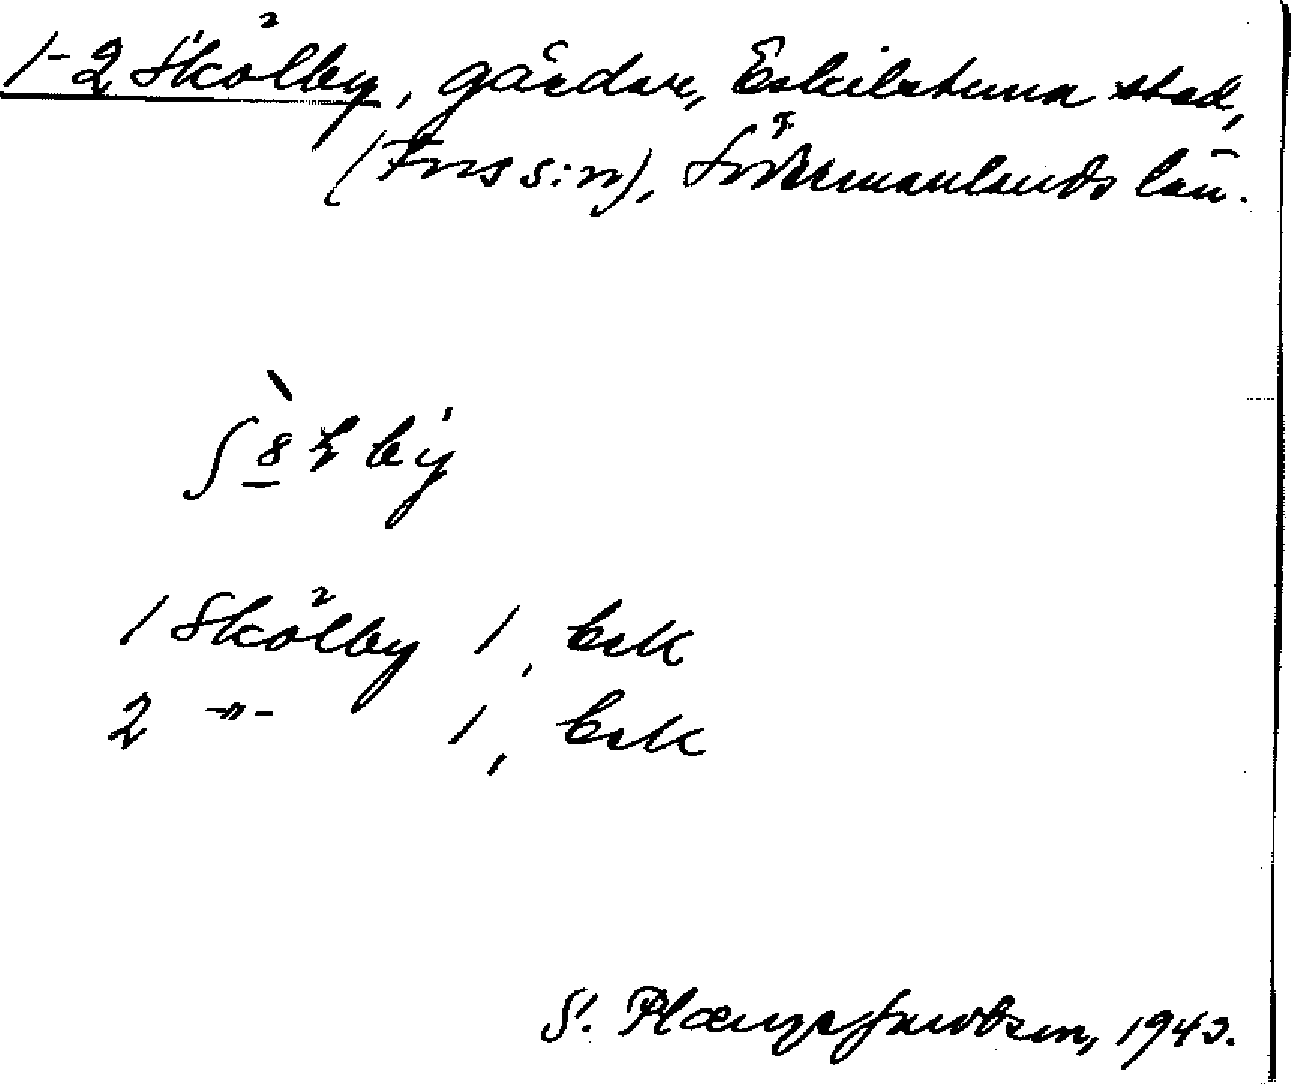 1-2 Skölby, gårdar, Eskilstuna stad,
(Fors s:n), Södermanlands län.
by
1 Skölby 1, Esk
2 -"- 1, Esk
S. Plænge Jacobson, 1943.